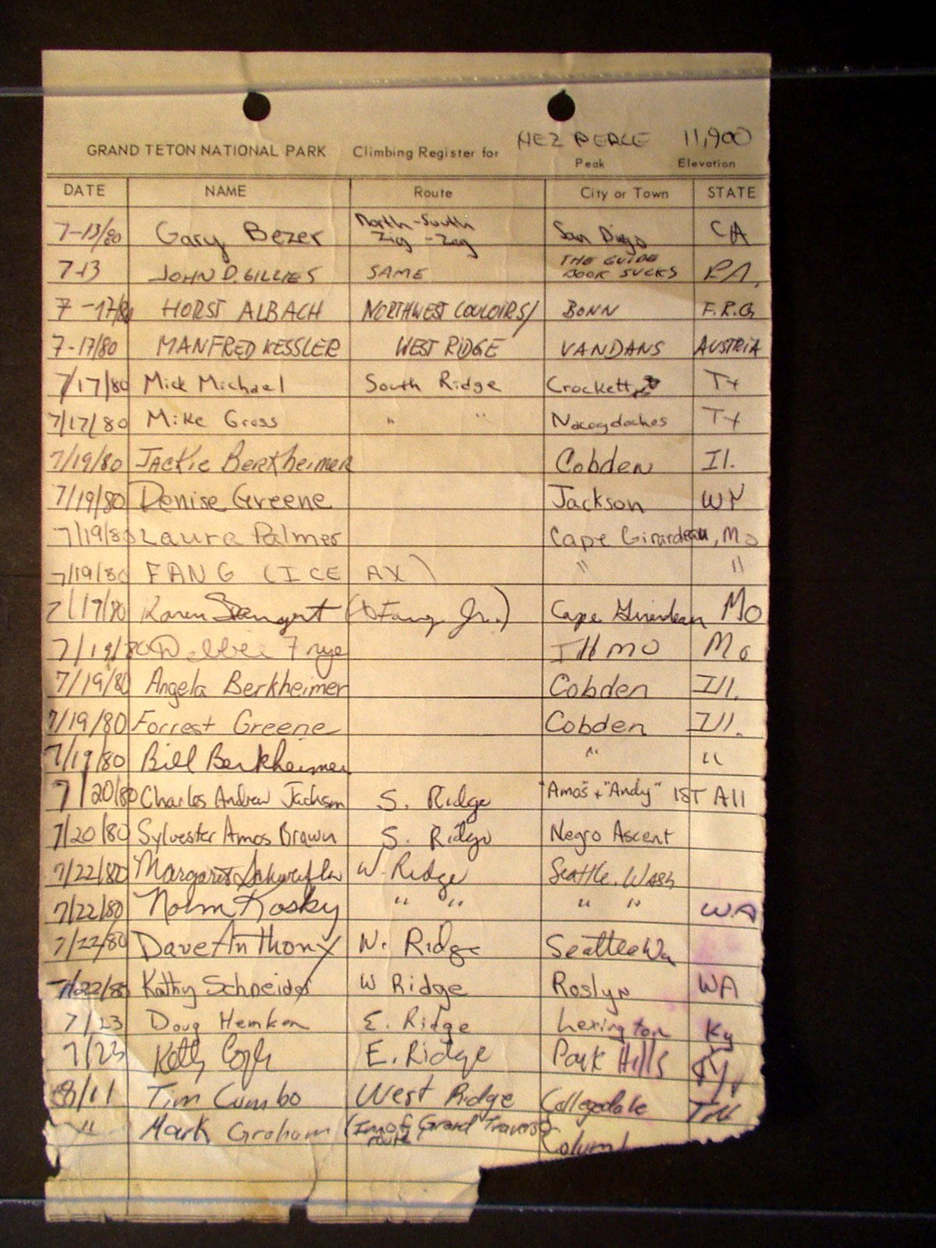 NEZ PERCE 11,900
GRAND TETON NATIONAL PARK Climbing Register for Peak Elevation
DATE NAME Route City or Town STATE
7-13/80 Gary Bezer North-South Zig-Zag San Diego CA
7-13 JOHN D. GILLIES SAME THE GUIDE BOOK SUCKS PA.
7-17/80 HORST ALBACH NORTHWEST COULOIRS/ BONN F.R.G
7-17/80 MANFRED KESSLER WEST RIDGE VANDANS AUSTRIA
7/17/80 Mick Michael South Ridge Crockett Tx
7/17/80 Mike Gross " " Nacogdoches Tx
7/19/80 Jackie Berkheimer Cobden Il.
7/19/80 Denise Greene Jackson WY
7/19/80 Laura Palmer Cape Girardeau, Mo
7/19/80 FANG (ICE AX) " "
7/17/80 Karen (& Fang Jr.) Cape Girardeau Mo
7/19/80 Debbie Frye Illmo Mo
7/19/80 Angela Berkheimer Cobden Ill.
7/19/80 Forrest Greene Cobden Ill.
7/19/80 Bill Berkheimer " "
7/20/80 Charles Andrew Jackson S. Ridge "Amos" + "Andy" 1ST All
7/20/80 Sylvester Amos Brown S. Ridge Negro Ascent
7/22/80 Margaret W. Ridge Seattle, Wash
7/22/80 Norm Kosky " " " " WA
7/22/80 Dave Anthony W. Ridge Seattle Wa
7/22/80 Kathy Schneider W Ridge Roslyn WA
7/23 Doug Hemken E. Ridge Lexington Ky
7/23 Kelly E. Ridge Park Hills Ky
8/11 Tim Cumbo West Ridge Collegedale TN
" Mark Graham Grand Traverse route Columb